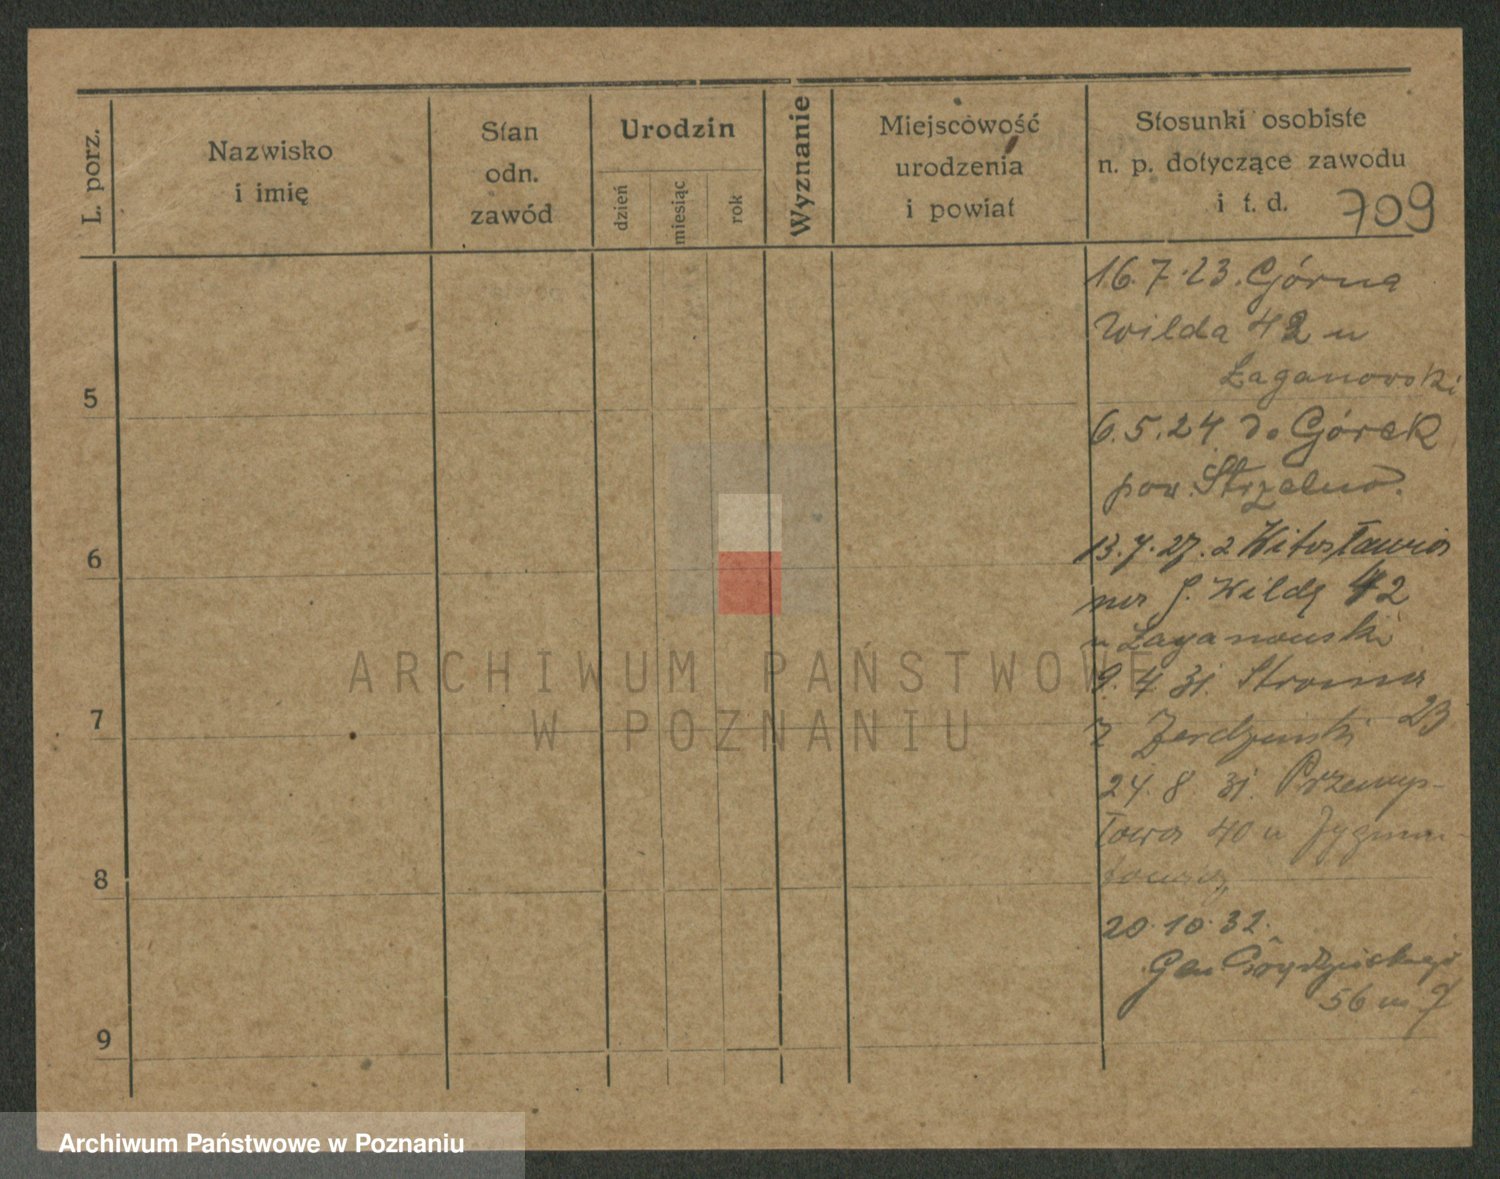 L. porz.
Nazwisko
i imię
Stan
odn.
zawód
Urodzin
dzień
miesiąc
rok
Wyznanie
Miejscowość
urodzenia
i powiat
Stosunki osobiste
n. p. dotyczące zawodu
i t. d.
709
16.7.23. Górna
Wilda 42 u
Łaganowski
5
6.5.24 do Górek
pow. Strzelno.
13.7.27. z
6
G. Wildę 42
u Łaganowski
9.4.31. Stroma
23
7
24.8.31. Przemys-
łowa 40 u Zygman-
towicz
8
20.10.32.
Gen.
56 m 7
9
ARCHIWUM PAŃSTWOWE
W POZNANIU
Archiwum Państwowe w Poznaniu